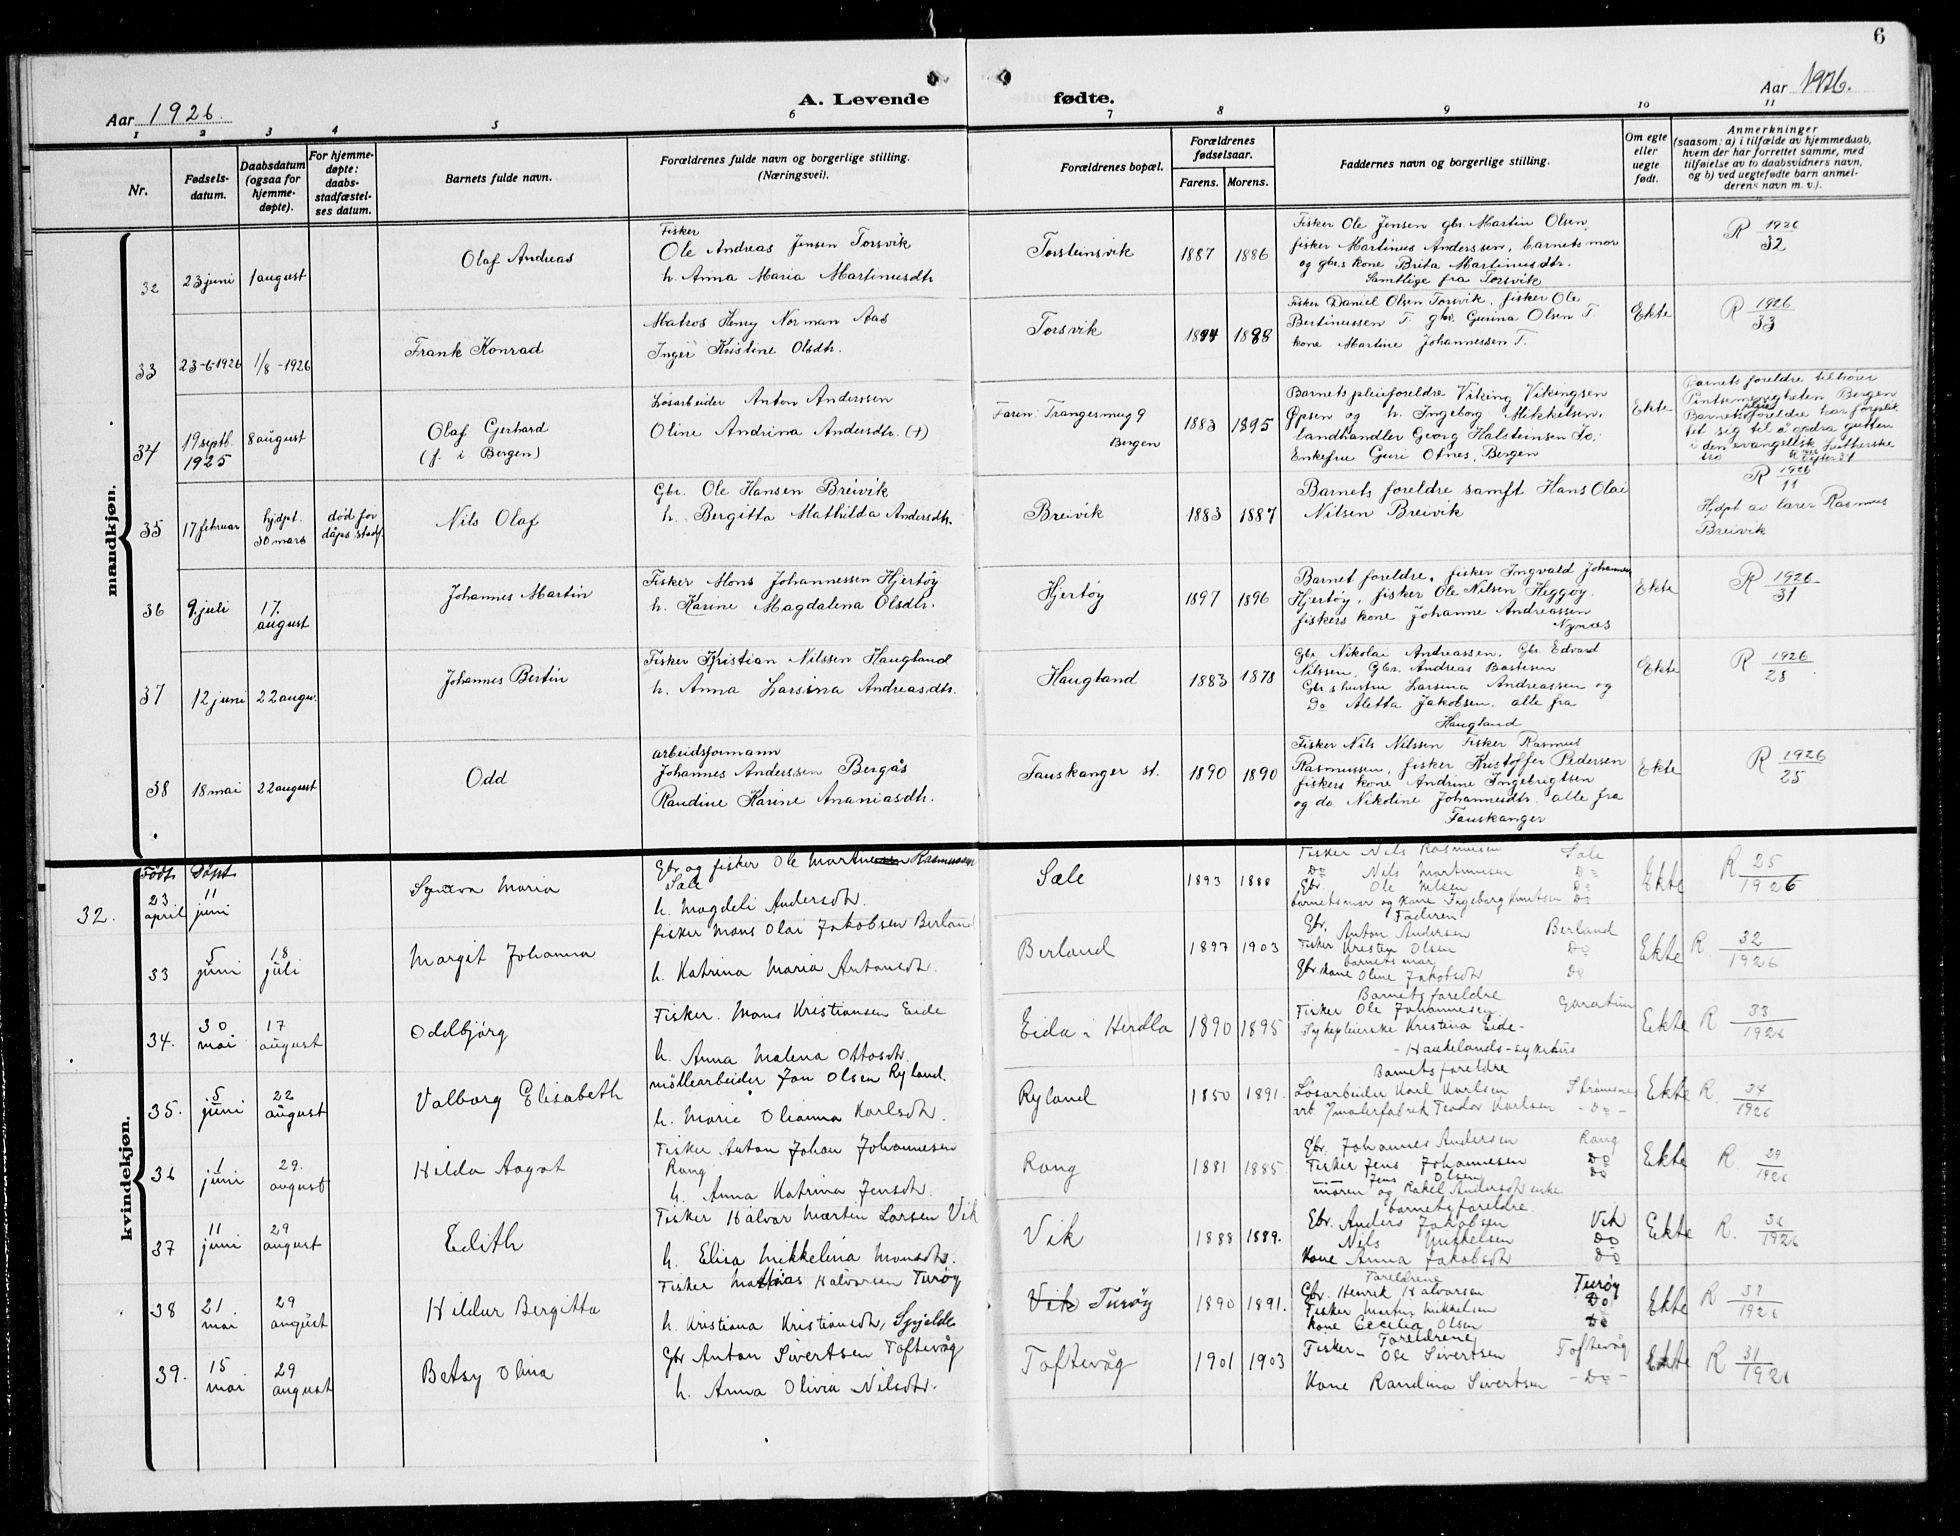 6
Aar 1926.
A. Levende fødte.
Aar 1926.
1 2 3 4 5 6 7 8 9 10 11
Nr.
Fødsels-
datum.
Daabsdatum
(ogsaa for
hjemme-
døpte).
For hjemme-
døpte:
daabs-
stadfæstel-
ses datum.
Barnets fulde navn.
Forældrenes fulde navn og borgerlige stilling.
(Næringsvei).
Forældrenes bopæl.
Forældrenes
fødselsaar.
Farens. Morens.
Faddernes navn og borgerlige stilling.
Om egte
eller
uegte
født.
Anmerkninger
(saasom: a) i tilfælde av hjemmedaab,
hvem der har forrettet samme, med
tilføielse av to daabsvidners navn,
og b) ved uegtefødte barn anmel-
derens navn m. v.).
mandkjøn.
32 23 juni 1 august
Olaf Andreas
Fisker
Ole Andreas Jensen Torsvik
h. Anna Maria Martinusdtr.
Torsteinsvik
1887 1886
Fisker Ole Jensen gbr. Martin Olsen,
fisker Martinus Anderssen, barnets mor
og gbrs kone Brita Martinusdtr.
Samtlige fra Torsvik
R 1926
32
33 23-6-1926 1/8-1926
Frank Konrad
Matros Henry Norman Aas
Inger Kristine Olsdtr.
Torsvik
1888
Fisker Daniel Olsen Torsvik, fisker Ole
Bertinussen T. gbr. Gurina Olsen T.
kone Martine Johannessen T.
Ekte
R 1926
33
34 19 septb. 1925 8 august
Olaf Gerhard
(f. i Bergen)
Løsarbeider Anton Anderssen
Oline Andrina Andersdtr. (+)
Faren: Trangesmug 9
Bergen
1883 1895
Barnets pleieforeldre Viking Vikingsen
Øpsen og h. Ingeborg Mikkelsen,
landhandler Georg Halsteinsen Jo,
Enkefru Guri Otnes, Bergen
Ekte
Barnets foreldre tilhører
Pintsemenigheten Bergen
Barnets pleieforeldre har forplik
tet sig til å opdra gutten
i den evangelisk lutherske
tro
35 17 februar hjdpt. 30 mars
død før
dåps stadf.
Nils Olaf
Gbr. Ole Hansen Breivik
h. Bergitta Mathilda Andersdtr.
Breivik
1883 1887
Barnets foreldre samt Hans Olai
Nilsen Breivik
R 1926
11
Hjdpt av lærer Rasmus
Breivik
36 9. juli 17. august
Johannes Martin
Fisker Mons Johannessen Hjertøy
h. Karine Magdalena Olsdtr.
Hjertøy
1897 1896
Barnet foreldre, fisker Ingvald Johannes
Hjertøy, fisker Ole Nilsen Heggøy,
fiskers kone Johanne Andreassen
Nynæs
Ekte
R 1926
31
37 12 juni 22 augus.
Johannes Bertin
Fisker Kristian Nilssen Haugland
h. Anna Larsina Andreasdtr.
Haugland
1883 1878
Gbr Nikolai Andreassen, Gbr. Edvard
Nilssen, Gbr. Andreas Bastesen
Gbr.s hustru Larsina Andreassen og
Do Aletta Jakobsen, alle fra
Haugland
Ekte
R 1926
28
38 18 mai 22 august
Odd
arbeidsformann
Johannes Anderssen Bergås
Randine Karine Ananiasdtr.
Fauskanger st.
1890 1890
Fisker Nils Nilssen Fisker Rasmus
Rasmussen, fisker Kristoffer Pedersen
fiskers kone Andrine Ingebrigtsen
og do Nikoline Johannesdtr. alle fra
Fauskanger
Ekte
R 1926
25
kvindekjøn.
Født Døpt
32. 23 april 11 juni
Synnva Maria
Gbr og fisker Ole Martinussen Rasmussen
Sæle
h. Magdeli Andersdtr.
Sæle
1893 1888
Fisker Nils Rasmussen Sæle
Do Nils Martinusen Do
Gbr. Ole Nilsen Do
barnets mor og kone Ingeborg Knutsen Do
Ekte
R 25
1926
33 5 juni 18 juli
Margit Johanna
fisker Mons Olai Jakobsen Berland
h. Katrina Maria Antonsdtr.
Berland
1897 1903
Faderen
Gbr. Anton Andersen Berland
Fisker Kristen Olsen Do
barnets mor
Gbr kone Oline Jakobsdtr Do
Ekte
R. 32
1926
34. 30 mai 17 august
Oddbjørg
Fisker. Mons Kristiansen Eide
h. Anna Malena Ottosdtr.
Eida i Herdla
1890 1895
Barnets foreldre
Fisker Ole Johannesen
Sykepleierske Kristina Eide-
-Haukelands-sykehus
Ekte
R 33
1926
35. 5 juni 22 august
Valborg Elisabeth
møllearbeider Jon Olsen Ryland.
h. Marie Olianna Karlsdtr.
Ryland
1850 1891.
Barnets foreldre
Løsarbeider Karl Karlsen Strømsnes
Teodor Karlsen -Do-
Ekte
R. 34
1926
36 1 juni 29. august
Hilda Aagot
Fisker Anton Johan Johannesen
Rong
h. Anna Katrina Jensdtr.
Rong
1881 1885.
Gbr. Johannes Andersen Rong
Fisker Jens Johannesen Do
Jens Olsen Do
moren og Rakel Andersdtr enke
Ekte
R. 29
1926
37 11 juni 29 august
Edith
Fisker Halvor Martin Larsen Vik
h. Elisa Mikkelina Monsdtr.
Vik
1888 1889.
barnets foreldre
Gbr. Anders Jakobsen Vik
Nils Mikkelsen Do
Kone Anna Jakobsdtr Do
Ekte
R. 36
1926
38 21. mai 29 august
Hildur Bergitta
Fisker Mathias Halvorsen Turøy
h. Kristiana Kristiansdtr, Spjelds
Vik Turøy
1890 1891.
Foreldrene
Gbr. Henrik Halvorsen Turøy
Fisker Martin Mikkelsen Do
Kone Cecilia Olsen Do
Ekte
R 37
1926
39. 15 mai 29 august
Betsy Olina
Gbr Anton Sivertsen Toftevåg
h. Anna Olivia Nilsdtr.
Toftevåg
1901 1903
Foreldrene
Fisker- Ole Sivertsen Toftevåg
Kone Randina Sivertsen -Do-
Ekte
R 31
1926